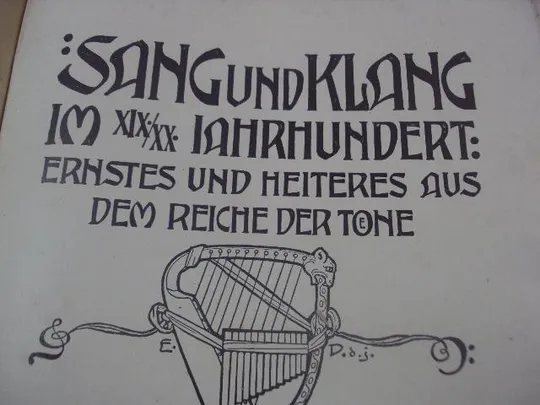 :SANG UND KLANG
IM XIX./XX. JAHRHUNDERT:
ERNSTES UND HEITERES AUS
DEM REICHE DER TOENE
E. D. d. j.